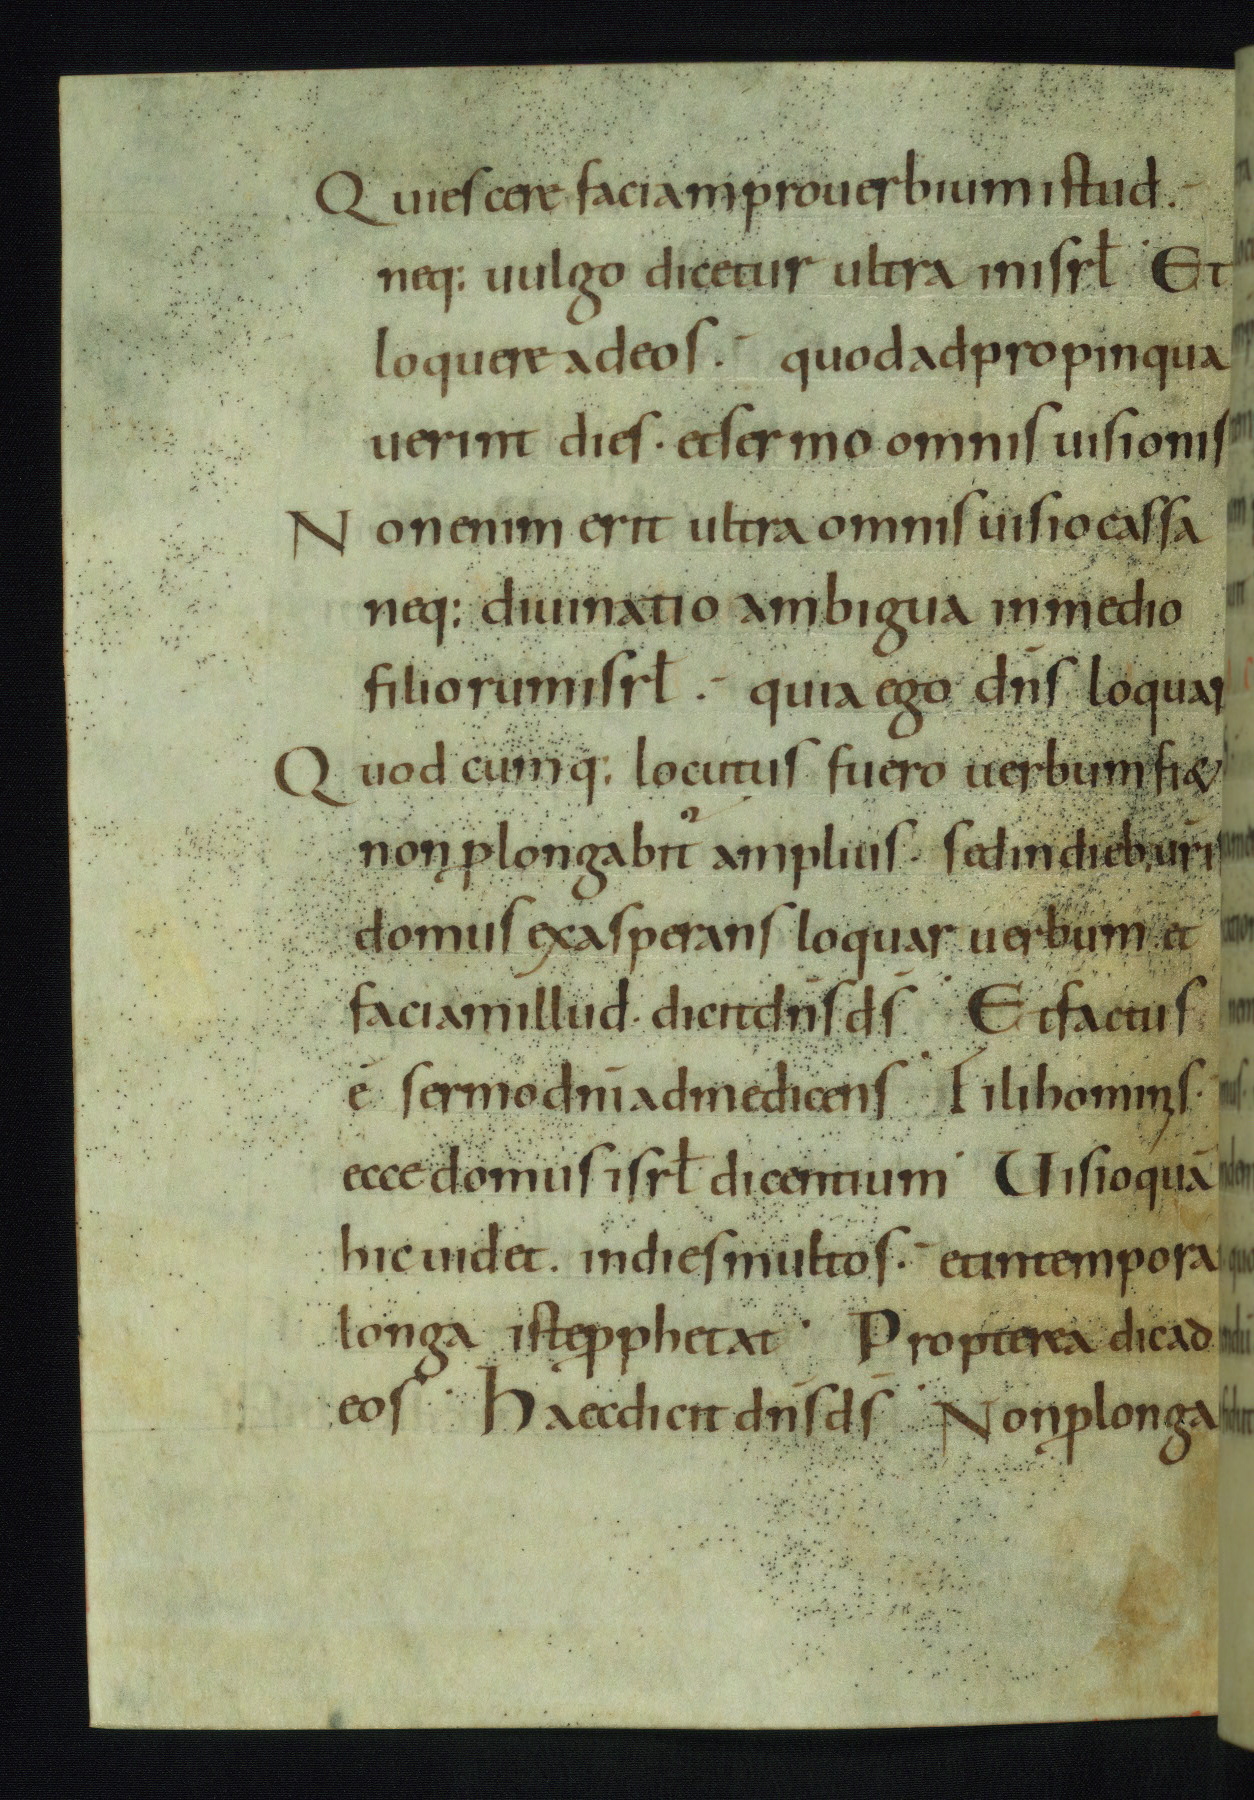 Quiescere faciam prouerbium istud.
neq: uulgo dicetur ultra in isrł Et
loquere ad eos. quod adpropinqua
uerint dies. et sermo omnis uisionis
Non enim erit ultra omnis uisio cassa
neq: diuinatio ambigua in medio
filiorum isrł. quia ego dn̄s loquar
Quodcumq: locutus fuero uerbum fi&
non ꝓlongabit᷑ amplius. sed in dieb; ur̄is
domus exasperans loquar uerbum et
faciam illud. dicit dn̄s ds̄ Et factus
ē sermo dn̄i ad me dicens Fili hominis.
ecce domus isrł dicentium Uisio quā
hic uidet. in dies multos. et in tempora
longa iste ꝓphetat Propterea dic ad
eos Haec dicit dn̄s ds̄ Non ꝓlonga